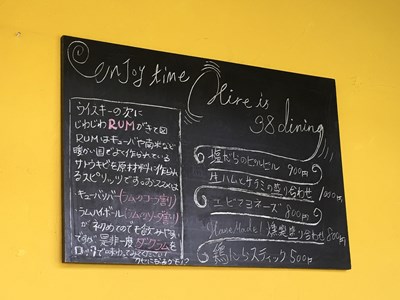 enjoy time
Hire is
38 dining
ウイスキーの次に
じわじわRUMがきて図
RUMはキューバや南米など
暖かい国でよく作られている
サトウキビを原材料に作られ
るスピリッツです。おススメは
キューバリバー(ラムのコーラ割り)
ラムハイボール(ラムのソーダ割り)
が初めてのでも飲みやすい
ですが是非一度ダークラムを
ロックで味わってみてください!
塩だらのピルピル 900円
生ハムとサラミの盛り合わせ 1000円
エビマヨネーズ 800円
Home Made! 燻製盛り合わせ 800円
鶏にらスティック 500円